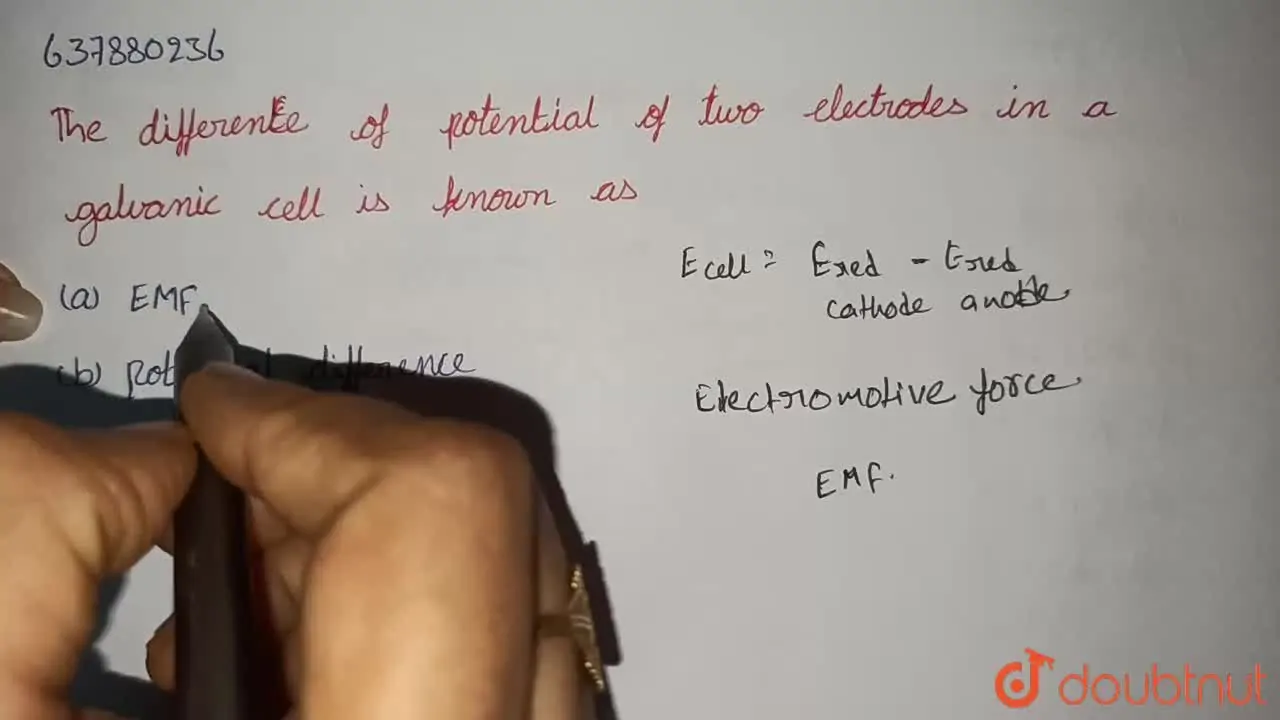 637880236
The difference of potential of two electrodes in a
galvanic cell is known as
(a) EMF
(b) difference
Ecell = Ered - Ered
cathode anode
Electromotive force
EMF.
doubtnut